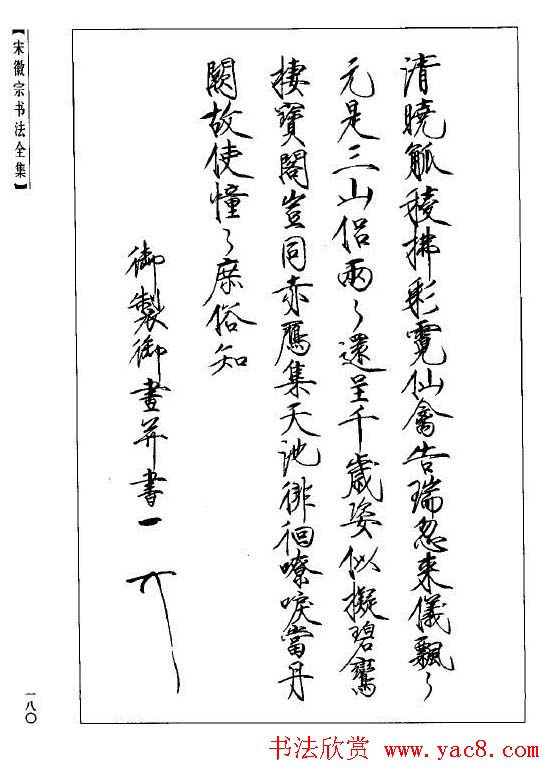 清曉觚稜拂彩霓仙禽告瑞忽来儀飄〻
元是三山侣兩〻還呈千歲姿似擬碧鸞
棲寶閣豈同赤鴈集天池徘徊嘹唳當丹
闕故使憧〻庶俗知
御製御畫并書
【宋徽宗书法全集】
一八〇
书法欣赏 www.yac8.com